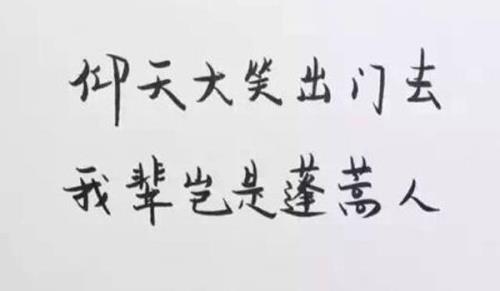 仰天大笑出门去
我辈岂是蓬蒿人